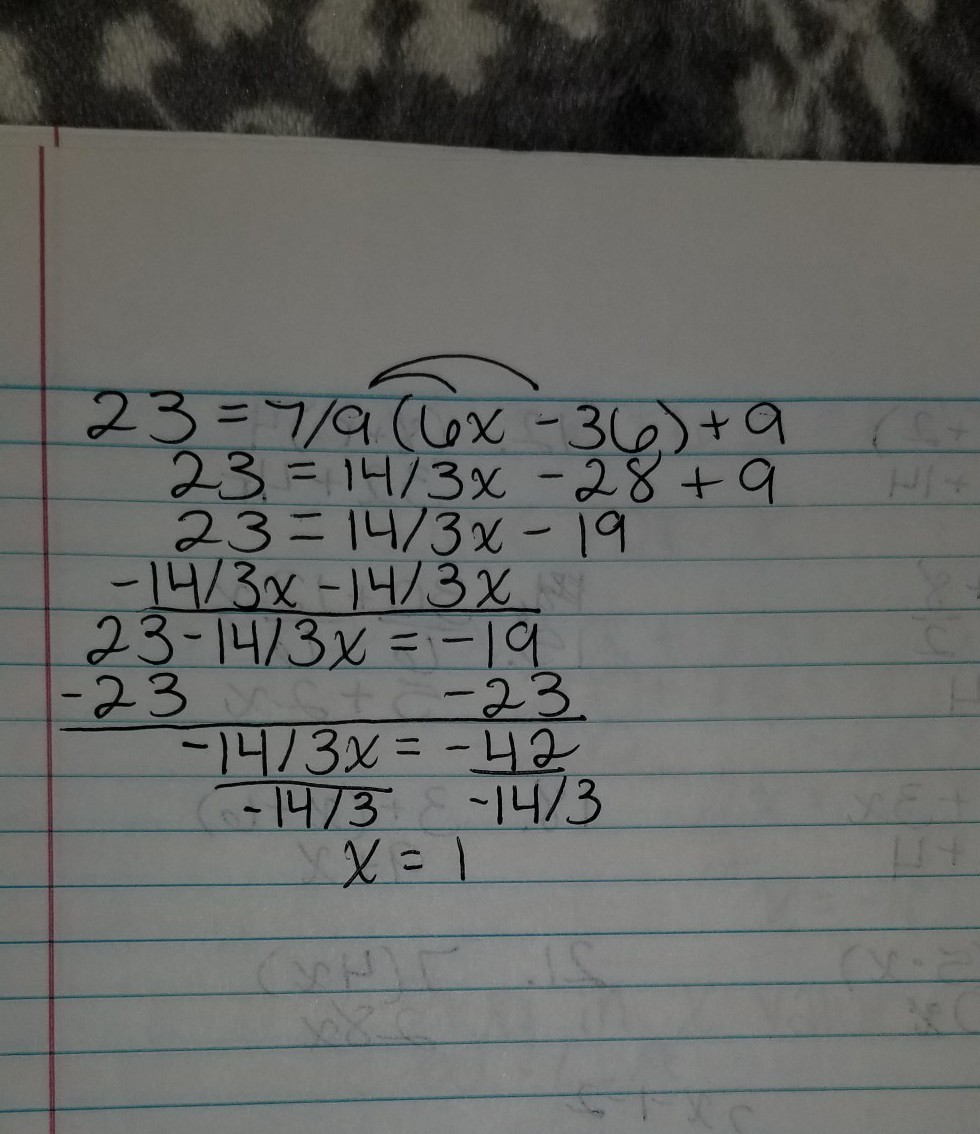 23 = 7/9 (6x - 36) + 9
23 = 14/3x - 28 + 9
23 = 14/3x - 19
-14/3x -14/3x
23 - 14/3x = -19
-23 -23
-14/3x = -42
-14/3 -14/3
x = 1